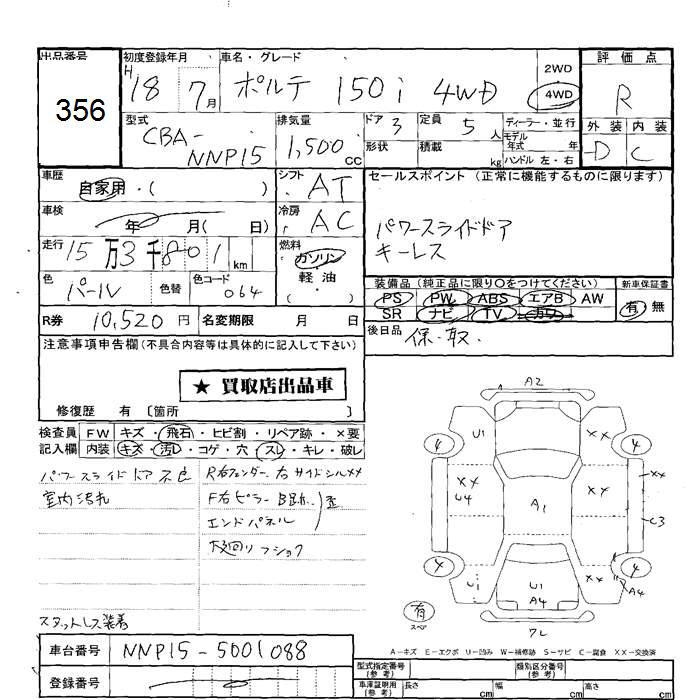 出品番号 356
初度登録年月 H 18 7月
車名・グレード ポルテ 150i 4WD
2WD
4WD
評価点 R
型式 CBA-NNP15
排気量 1,500 cc
ドア 3
形状
定員 5 人
積載 kg
ディーラー・並行
モデル年式 年
ハンドル 左・右
外装 内装
D C
車歴 自家用・( )
シフト AT
セールスポイント (正常に機能するものに限ります)
パワースライドドア
キーレス
車検 年 月( 日)
冷房 AC
走行 15万3千801 km
燃料 ガソリン・軽油
色 パール 色替
色コード 064
装備品 (純正品に限り○をつけてください)
新車保証書
PS PW ABS エアB AW
SR ナビ TV カワ
有 無
R券 10,520円 名変期限 月 日
後日品 保・取
注意事項申告欄 (不具合内容等は具体的に記入して下さい)
★ 買取店出品車
修復歴 有 〔箇所 〕
検査員記入欄
FW キズ・飛石・ヒビ割・リペア跡・×要
内装 キズ・汚レ・コゲ・穴・スレ・キレ・破レ
パワースライドドア不良
室内汚れ
R右フェンダー
F右ピラー
エンドパネル
スタットレス装着
A2
U1 XX
4 4
XX U4 XX XX
A1 C3
4 4
U1 U1 XX A4
A4
有 スペア
フレ
A-キズ E-エクボ U-凹み W-補修跡 S-サビ C-腐食 XX-交換済
車台番号 NNP15-5001088
登録番号
型式指定番号 (参考)
類別区分番号 (参考)
車庫証明用 (参考) 長さ cm 幅 cm 高さ cm